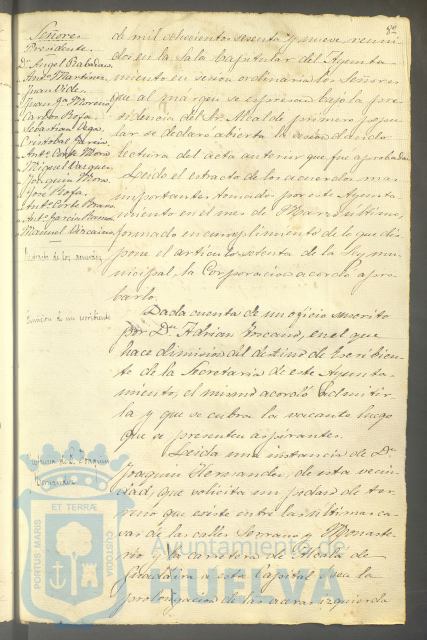 Señores
Presidente
Dn Angel Rabadan
Anto. Martinez
Juan Vides
Juan Ja. Moreno
Carlos Rofa
Sebastian Vega
Cristobal Garcia
Anto. Corte Mora
Miguel Vazquez
Joaquin Mora
José Rofa
Anto. Corte Bravo
Anto. Garcia
Manuel Vizcaino
Extracto de los acuerdos
Dimision de un escribiente
Instancia de D. Joaquin
Hernandez
de mil ochocientos sesenta y nueve, reuni
dos en la Sala Capitular del Ayunta
miento en sesion ordinaria los Señores
que al márgen se espresan bajo la pre
sidencia del Sr. Alcalde primero popu
lar se declaró abierta la sesion dandose
lectura del acta anterior que fue aprobada
Leido el estracto de los acuerdos mas
importantes tomados por este Ayunta
miento en el mes de Marzo último,
formado en cumplimiento de lo que dis
pone el articulo setenta de la Ley mu
nicipal, la Corporacion acordó apro
barlo.
Dada cuenta de un oficio suscrito
por Dn. Adrian Toscano, en el que
hace dimision del destino de Escribien
te de la Secretaria de este Ayunta
miento, el mismo acordó admitir
la y que se cubra la vacante luego
que se presenten aspirantes.
Leida una instancia de Dn.
Joaquin Hernandez, de esta vecin
dad, que solicita un pedazo de ter
reno que existe entre las ultimas ca
sas de las calles Serrano y Monaste
rio y la carretera de Alcalá de
Guadaira a esta Capital, sea la
prolongacion de las aceras izquierda
PORTUS MARIS
ET TERRÆ
CUSTODIA
Ayuntamiento de
HUELVA